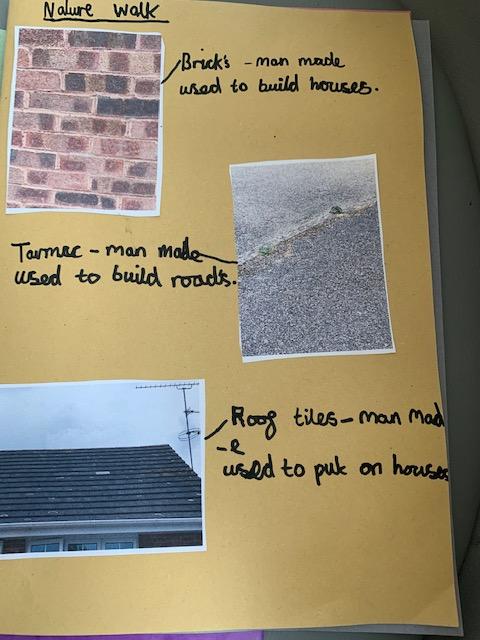 Nature walk
Brick's - man made
used to build houses.
Tarmac - man made
used to build roads.
Roof tiles - man mad
-e
used to put on houses